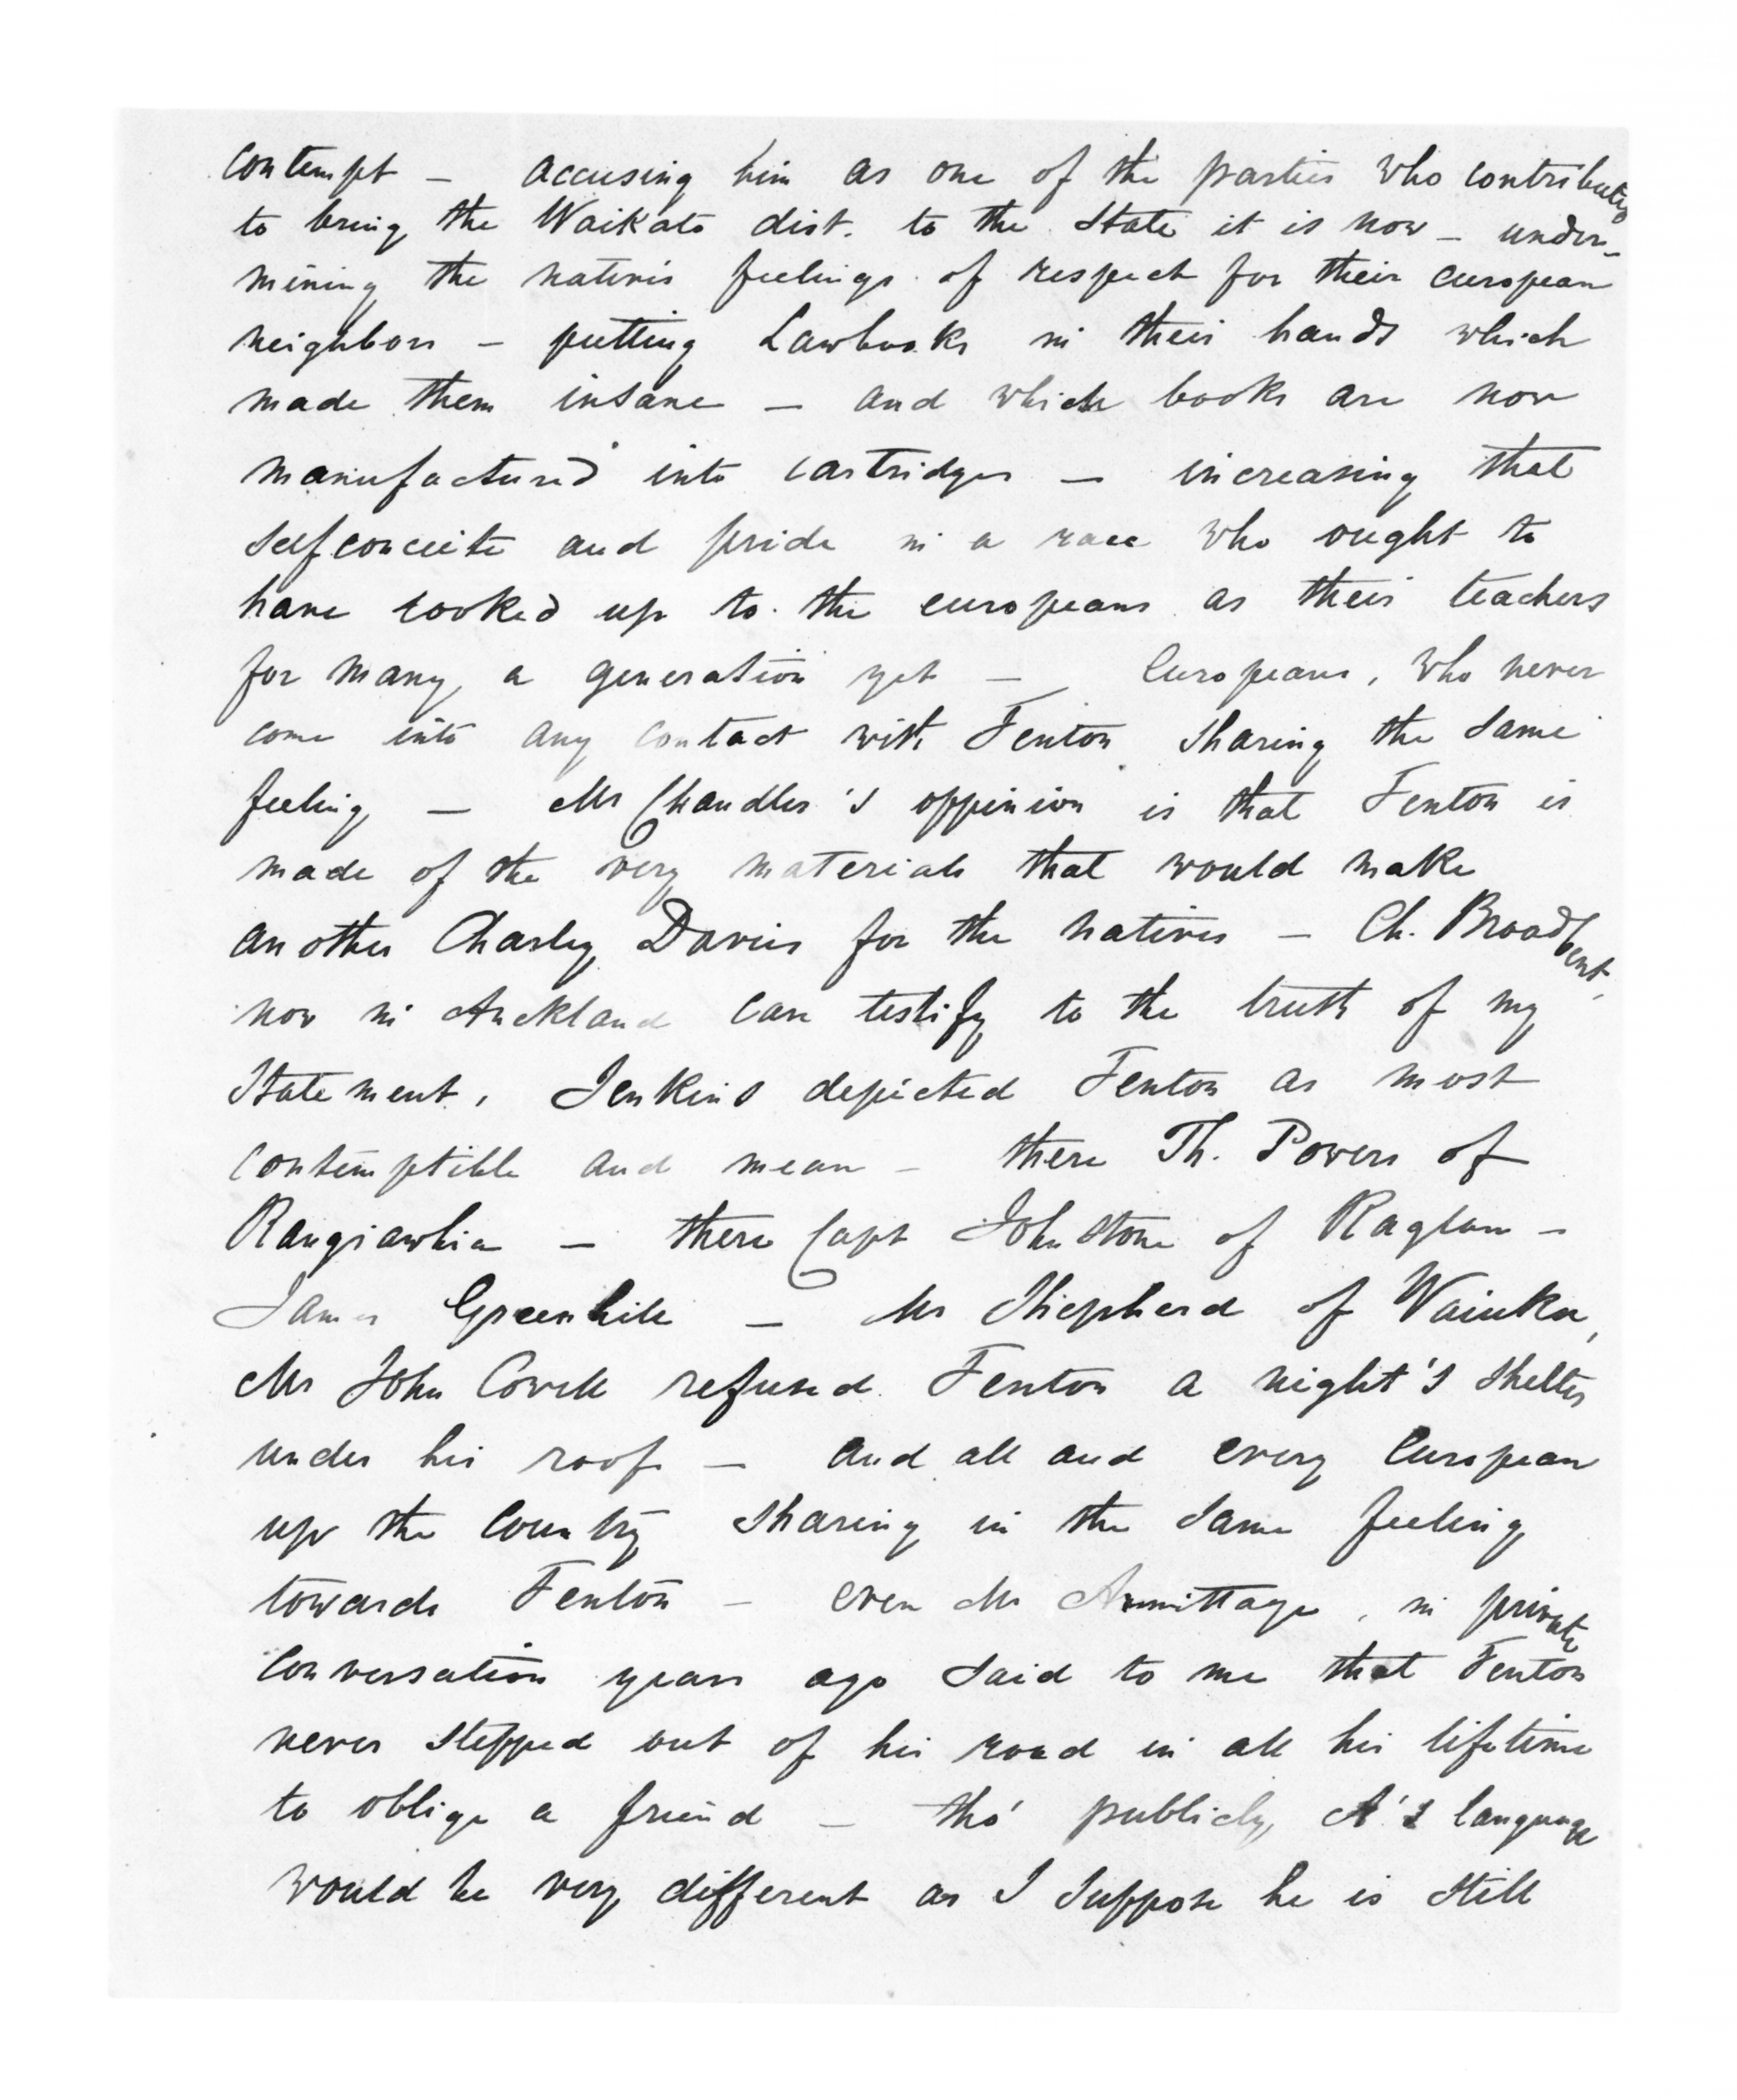 contempt – accusing him as one of the parties who contributed
to bring the Waikato dist. to the state it is now – under-
mining the native's feelings of respect for their european
neighbors – putting Lawbooks in their hands which
made them insane – and which books are now
manufactured into cartridges – increasing that
selfconceite and pride in a race who ought to
have looked up to the europeans as their teachers
for many a generation yet – Europeans, who never
come into any contact with Fenton sharing the same
feeling – Mr Chandler's oppinion is that Fenton is
made of the very materials that would make
another Charley Davies for the natives – Ch. Broadbent,
now in Auckland can testify to the truth of my
statement, Jenkins depicted Fenton as most
contemptible and mean – there Th. Powers of
Rangiawhia – there Capt Johnstone of Raglan –
James Greenhill – Mr Shepherd of Waiuku,
Mr John Cowell refused Fenton a night's shelter
under his roof – and all and every European
up the Country sharing in the same feeling
towards Fenton – even Mr Armittage, in private
Conversation years ago said to me that Fenton
never stepped out of his road in all his lifetime
to oblige a friend – tho' publicly, A's language
would be very different as I suppose he is still